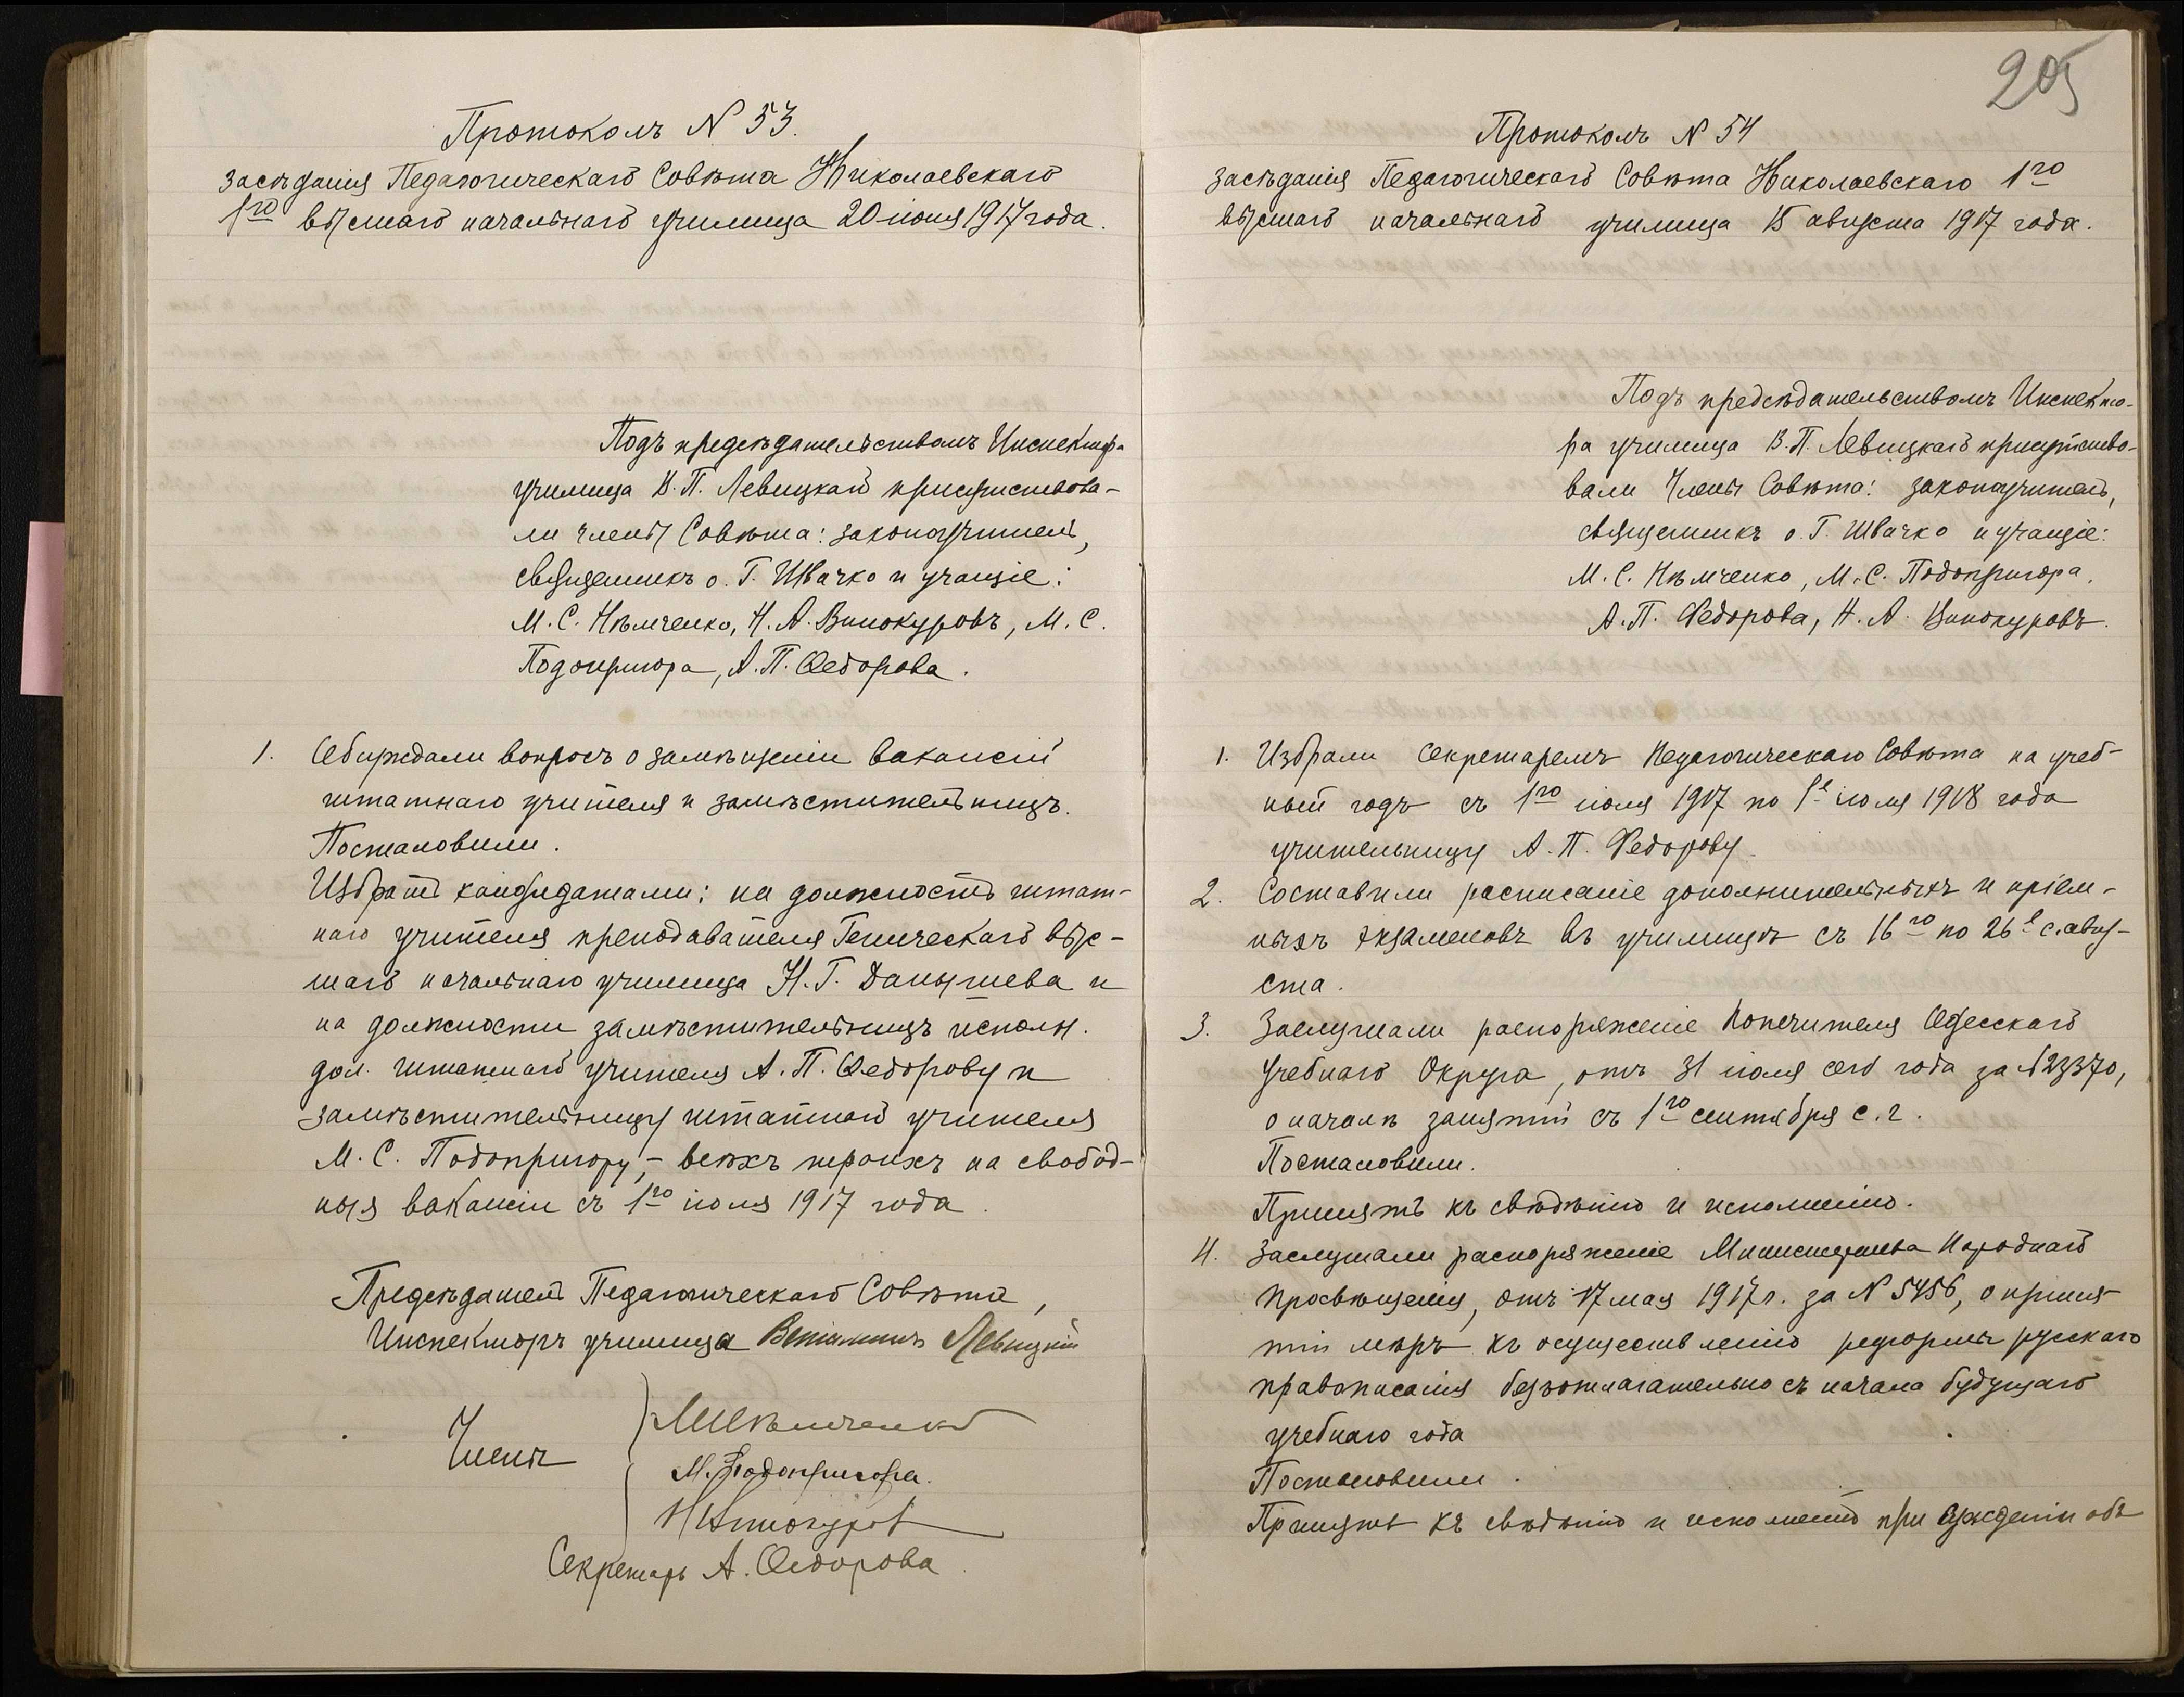 Протоколъ N 53.
засѣданія Педагогическаго Совѣта Николаевскаго
1го высшаго начальнаго училища 20 іюня 1917 года.
Подъ предсѣдательствомъ Инспектора
училища В. П. Левицкаго присутствова-
ли члены Совѣта: законоучитель,
священникъ о. Г. Швачко и учащіе:
М. С. Нѣмченко, Н. А. Винокуровъ, М. С.
Подопригора, А. П. Ѳедорова.
1. Обсуждали вопросъ о замѣщеніи вакансій
штатнаго учителя и замѣстительницъ.
Постановили.
Избрать кандидатами: на должность штат-
наго учителя преподавателя Геническаго выс-
шаго начальнаго училища Н. Г. Данышева и
на должности замѣстительницъ исполн.
дол. штатнаго учителя А. П. Ѳедорову и
замѣстительницу штатнаго учителя
М. С. Подопригору, – всѣхъ троихъ на свобод-
ныя вакансіи съ 1го іюля 1917 года.
Предсѣдатель Педагогическаго Совѣта,
Инспекторъ училища Веніаминъ Левицкій
Члены
МНѣмченко
М. Подопригора.
НВинокуровъ
Секретарь А. Ѳедорова.
205
Протоколъ N 54
засѣданія Педагогическаго Совѣта Николаевскаго 1го
высшаго начальнаго училища 15 августа 1917 года.
Подъ предсѣдательствомъ Инспекто-
ра училища В. П. Левицкаго присутство-
вали Члены Совѣта: законоучитель,
священникъ о. Г. Швачко и учащіе:
М. С. Нѣмченко, М. С. Подопригора,
А. П. Федорова, Н. А. Винокуровъ.
1. Избрали секретаремъ Педагогическаго Совѣта на учеб-
ный годъ съ 1го іюля 1917 по 1е іюля 1918 года
учительницу А. П. Федорову.
2. Составили расписаніе дополнительныхъ и пріем-
ныхъ экзаменовъ въ училищѣ съ 16го по 26е с. авгу-
ста.
3. Заслушали распоряженіе Попечителя Одесскаго
Учебнаго Округа, отъ 31 іюля сего года за N 23370,
о началѣ занятій съ 1го сентября с. г.
Постановили.
Принять къ свѣдѣнію и исполненію.
4. Заслушали распоряженіе Министерства Народнаго
Просвѣщенія, отъ 17 мая 1917 г. за N 5456, о приня-
тіи мѣръ къ осуществленію реформы русскаго
правописанія безотлагательно съ начала будущаго
учебнаго года
Постановили.
Принять къ свѣдѣнію и исполненію при сужденіи объ